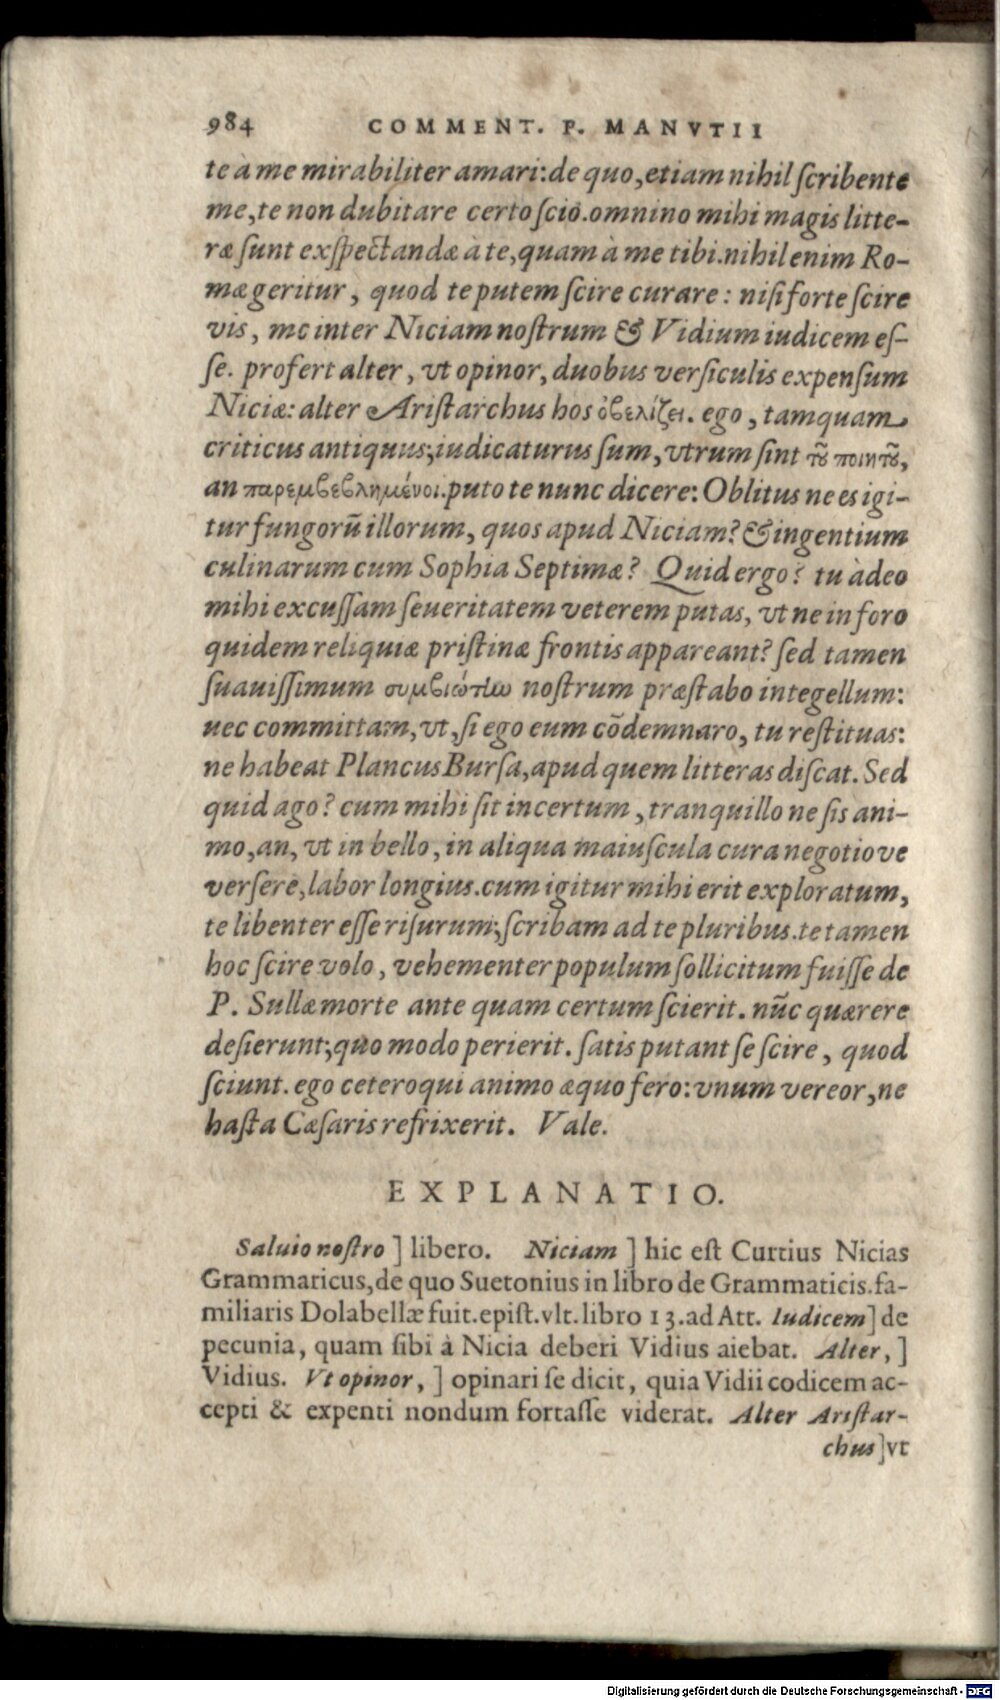 984 COMMENT. P. MANVTII
te à me mirabiliter amari: de quo, etiam nihil ſcribente
me, te non dubitare certo ſcio. omnino mihi magis litte-
ræ ſunt exſpectandæ à te, quam à me tibi. nihil enim Ro-
mæ geritur, quod te putem ſcire curare: niſi forte ſcire
vis, me inter Niciam noſtrum & Vidium iudicem eſ-
ſe. profert alter, vt opinor, duobus verſiculis expenſum
Niciæ: alter Ariſtarchus hos ὀβελίζει. ego, tamquam
criticus antiquus, iudicaturus ſum, vtrum ſint τοῦ ποιητοῦ,
an παρεμβεβλημένοι. puto te nunc dicere: Oblitus ne es igi-
tur fungorũ illorum, quos apud Niciam? & ingentium
culinarum cum Sophia Septimæ? Quid ergo? tu àdeo
mihi excuſſam ſeueritatem veterem putas, vt ne in foro
quidem reliquiæ priſtinæ frontis appareant? ſed tamen
ſuauiſſimum συμβιώτην noſtrum præſtabo integellum:
nec committam, vt, ſi ego eum cõdemnaro, tu reſtituas:
ne habeat Plancus Burſa, apud quem litteras diſcat. Sed
quid ago? cum mihi ſit incertum, tranquillo ne ſis ani-
mo, an, vt in bello, in aliqua maiuſcula cura negotiove
verſere, labor longius. cum igitur mihi erit exploratum,
te libenter eſſe riſurum, ſcribam ad te pluribus. te tamen
hoc ſcire volo, vehementer populum ſollicitum fuiſſe de
P. Sullæ morte ante quam certum ſcierit. nũc quærere
deſierunt, quo modo perierit. ſatis putant ſe ſcire, quod
ſciunt. ego ceteroqui animo æquo fero: vnum vereor, ne
haſta Cæſaris refrixerit. Vale.
EXPLANATIO.
Saluio noſtro ] libero. Niciam ] hic eſt Curtius Nicias
Grammaricus, de quo Suetonius in libro de Grammaticis. fa-
miliaris Dolabellæ fuit. epiſt. vlt. libro 13. ad Att. Iudicem ] de
pecunia, quam ſibi à Nicia deberi Vidius aiebat. Alter, ]
Vidius. Vt opinor, ] opinari ſe dicit, quia Vidii codicem ac-
cepti & expenti nondum fortaſſe viderat. Alter Ariſtar-
chus ] vt
Digitalisierung gefördert durch die Deutsche Forschungsgemeinschaft - DFG